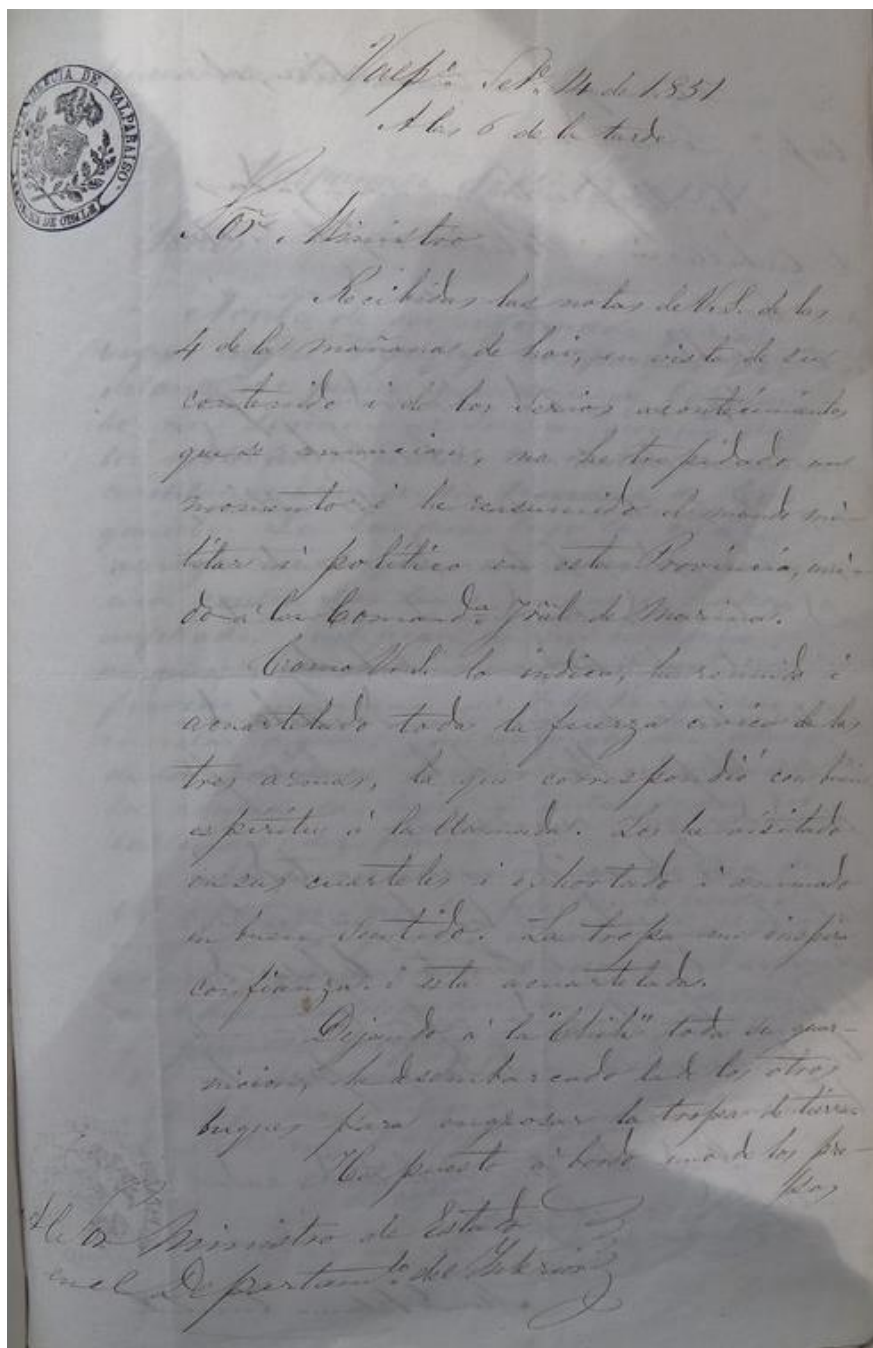 INTENDENCIA DE VALPARAISO
REPUBLICA DE CHILE
Valpo. Set. 14 de 1851
A las 6 de la tarde
Sor. Ministro
Recibidas las notas de V.S. de las
4 de la mañana de hoi, en vista de su
contenido i de los serios acontecimientos
que se anuncian, no he trepidado un
momento i he reasumido el mando mi-
litar i político en esta Provincia, uni-
do a la Comanda. Jral. de Marina.
Como V.S. lo indica, he reunido i
acuartelado toda la fuerza cívica de las
tres armas, la que correspondió con buen
espíritu á la llamada. Los he visitado
en sus cuarteles i exhortado i animado
en buen sentido. La tropa me inspira
confianza i está acuartelada.
Dejando á la "Chile" toda su guar-
nicion, he desembarcado la de los otros
buques para engrosar la tropa de tierra.
He puesto á bordo uno de los pre-
sos
Al Sor. Ministro de Estado
en el Departamto. del Interior